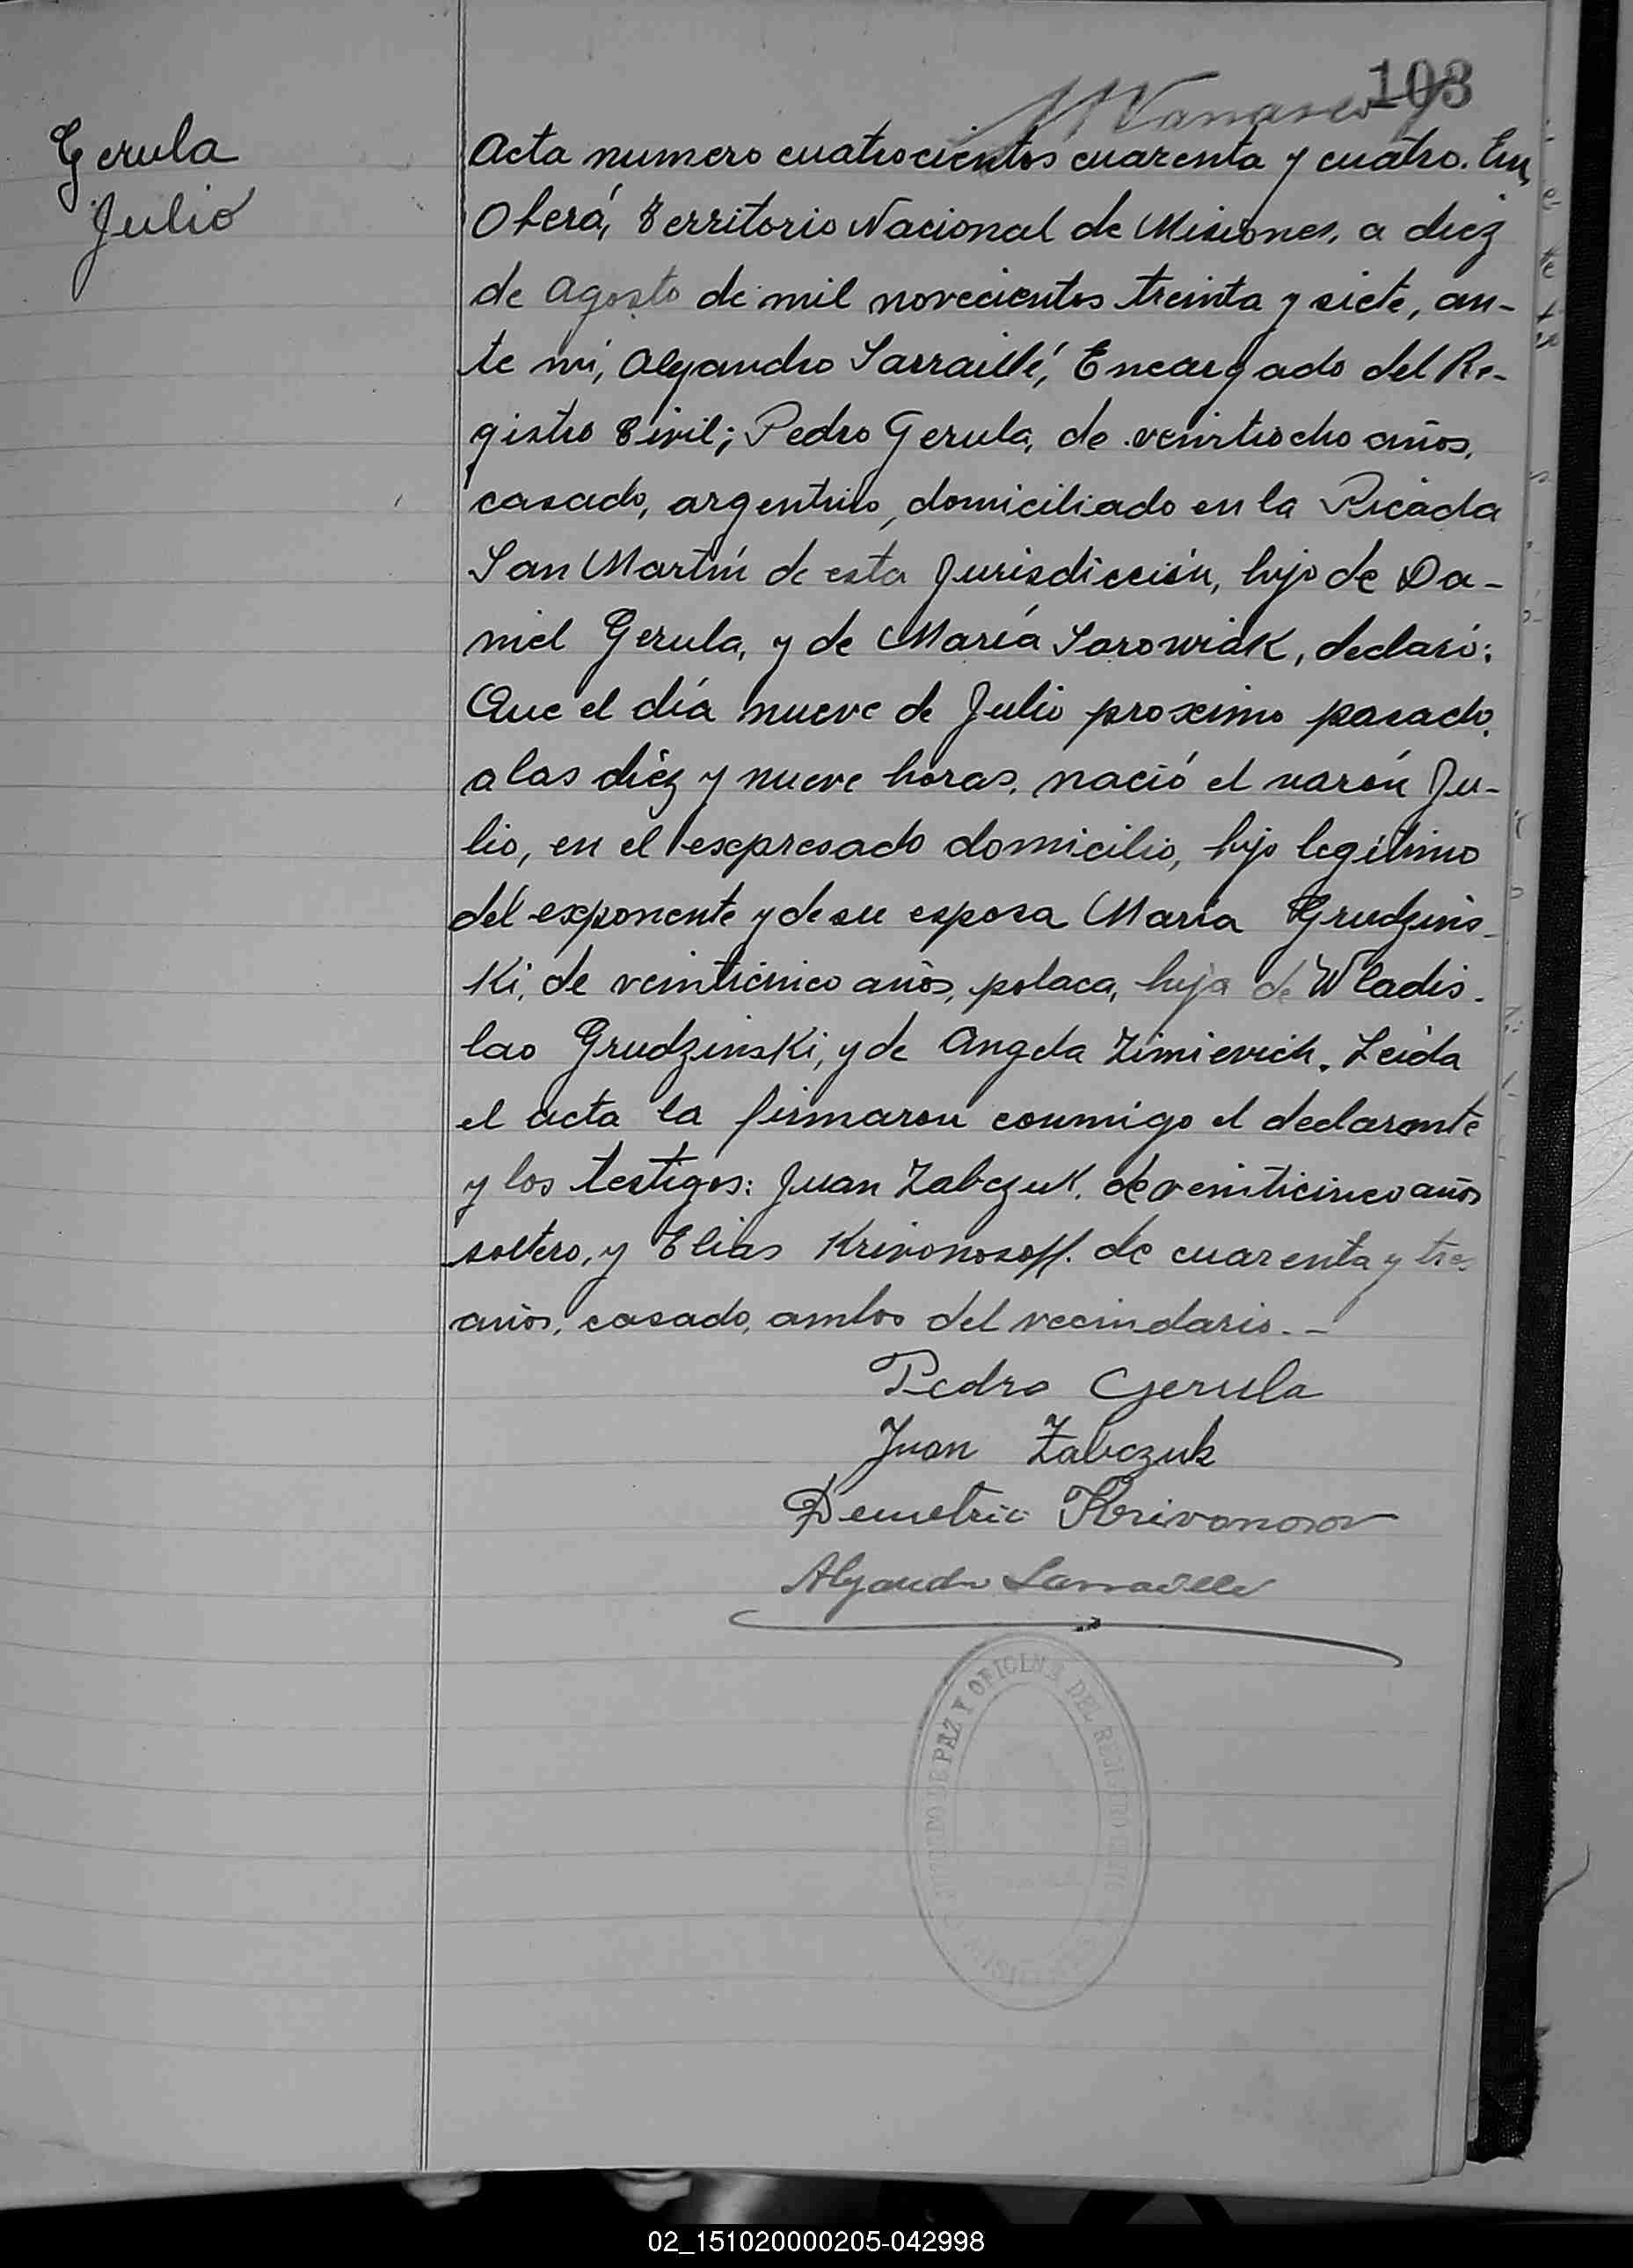 103
Gerula
Julio
Acta numero cuatrocientos cuarenta y cuatro. En
Oberá, Territorio Nacional de Misiones, a diez
de Agosto de mil novecientos treinta y siete, an-
te mi, Alejandro Sarraillé, Encargado del Re-
gistro Civil; Pedro Gerula, de veintiocho años,
casado, argentino, domiciliado en la Picada
San Martín de esta Jurisdicción, hijo de Da-
niel Gerula, y de María Sorowiak, declaró:
Que el día nueve de Julio proximo pasado,
a las diéz y nueve horas, nació el varón Ju-
lio, en el expresado domicilio, hijo legítimo
del exponente y de su esposa María Grudzins-
Ki, de veinticinco años, polaca, hija de Wladis-
lao GrudzinsKi, y de Angela Zimievich. Leida
el acta la firmaron conmigo el declarante
y los testigos: Juan Zabczuk, de veinticinco años
soltero, y Elias Krivonosoff, de cuarenta y tres
años, casado, ambos del vecindario.-
Pedro Gerula
Juan Zabczuk
Demetrio Krivonosov
Alejandro Sarraille
JUZGADO DE PAZ Y OFICINA DEL REGISTRO CIVIL
02_151020000205-042998